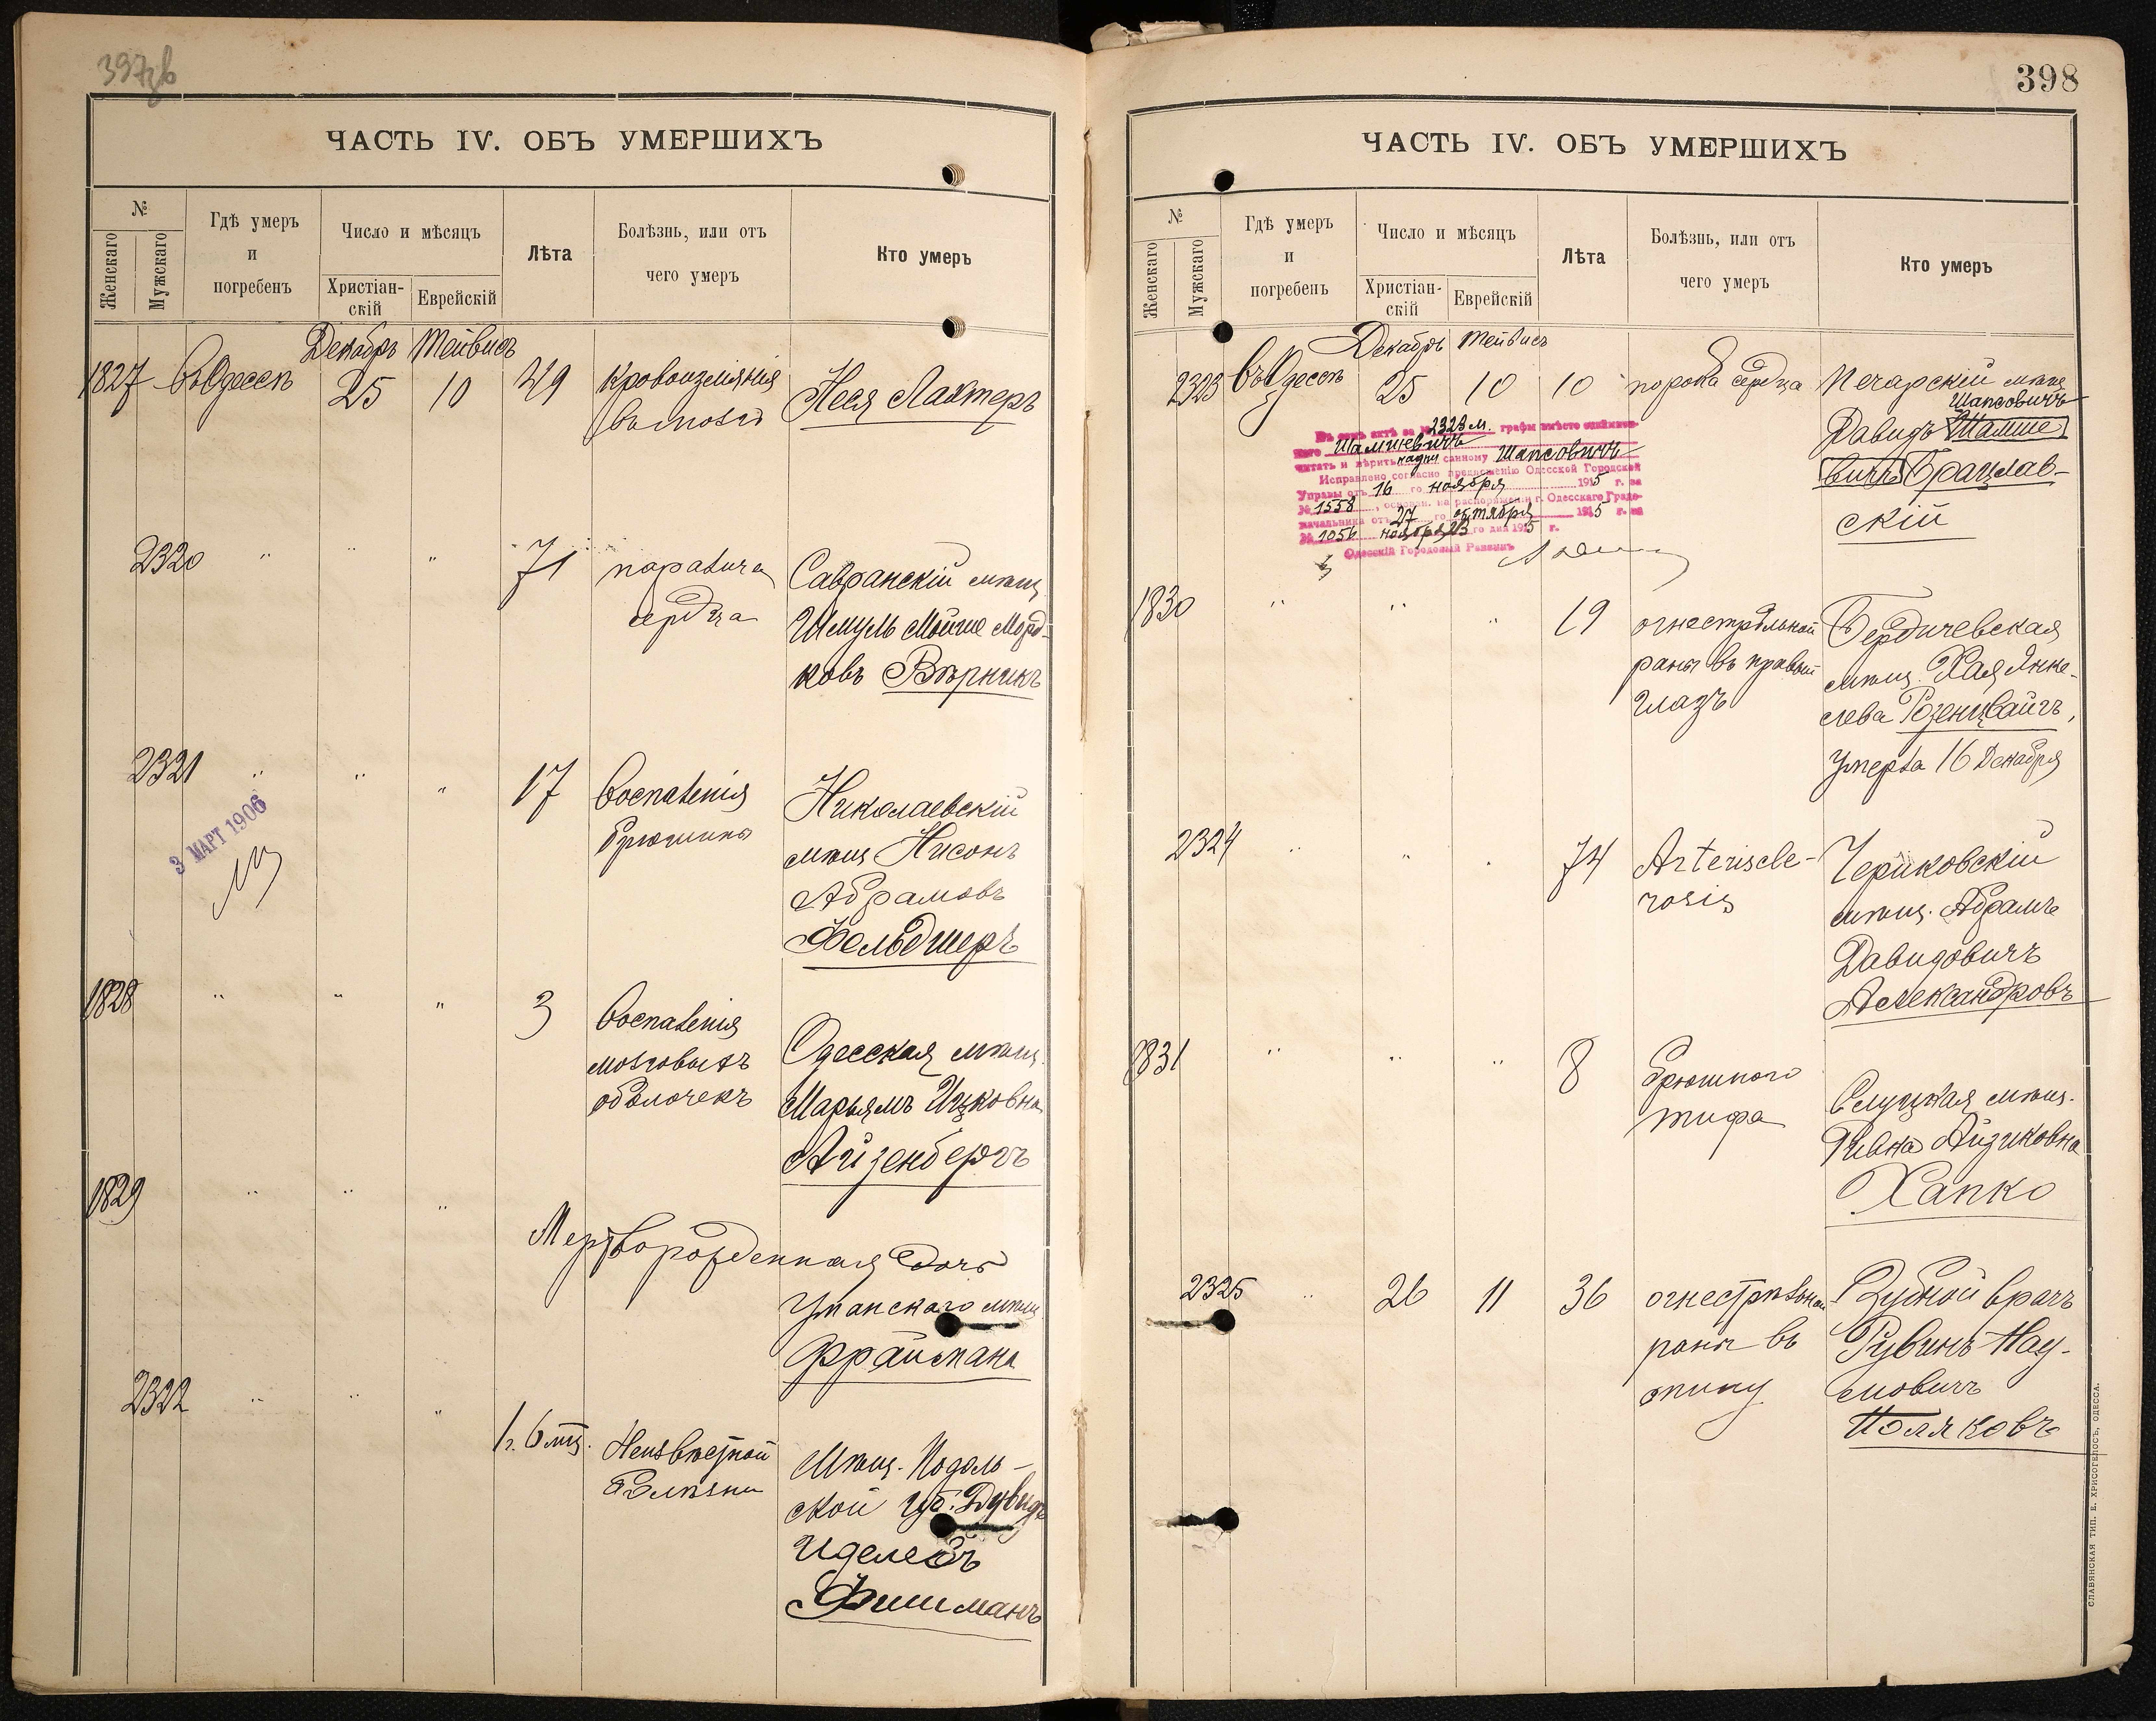 397 об
ЧАСТЬ IV. ОБЪ УМЕРШИХЪ
№
Женскаго
Мужскаго
Гдѣ умеръ
и
погребенъ
Число и мѣсяцъ
Христіан-
скій
Еврейскій
Лѣта
Болѣзнь, или отъ
чего умеръ
Кто умеръ
Декабрь Тейвисъ
1827 въ Одессѣ 25 10 49 кровоизліянія
въ мозгъ
Неся Лахтеръ
2320 " " " 71 паралича
сердца
Савранскій мѣщ.
Шмуль Мойше Морд-
ковъ Вѣрникъ
2321 " " " 17 воспаленія
брюшины
Николаевскій
мѣщ Нисонъ
Абрамовъ
Фельдшеръ
3 МАРТ 1906
1828 " " " 3 воспаленія
мозговыхъ
оболочекъ
Одесская мѣщ.
Марьямъ Ицковна
Айзенбергъ
1829 " " "
Мертворожденная дочь
Уманскаго мѣщ
Фраймана
2322 " " " 1 г. 6 мц. Неизвѣстной
болѣзни
Мѣщ. Подоль-
ской губ. Дувидъ
Иделевъ
Фишманъ
398
ЧАСТЬ IV. ОБЪ УМЕРШИХЪ
№
Женскаго
Мужскаго
Гдѣ умеръ
и
погребенъ
Число и мѣсяцъ
Христіан-
скій
Еврейскій
Лѣта
Болѣзнь, или отъ
чего умеръ
Кто умеръ
Декабрь Тейвисъ
2323 въ Одессѣ 25 10 10 порока сердца
Печарскій мѣщ
Шапсовичъ
Давидъ Шамше
вичъ Брацлав-
скій
Въ семъ актѣ за № 2323 м. графы вмѣсто
Шамшевичъ
читать и вѣрить надписанному Шапсовичъ
Исправлено согласно предложенію Одесской Городской
Управы отъ 16 го ноября 1915 г. за
№ 1558, основан. на распоряженіи г. Одесскаго Градо-
начальника отъ 27 го октября 1915 г. за
№ 1056 ноября 23 го дня 1915 г.
Одесскій Городовой Раввинъ
1830 " " " 19 огнестрѣльной
раны въ правый
глазъ
Бердичевская
мѣщ. Хая Янке-
лева Розенцвайгъ,
умерла 16 Декабря
2324 " " " 74 Arteriscle-
rosis
Чериковскій
мѣщ. Абрамъ
Давидовичъ
Александровъ
1831 " " " 8 брюшного
тифа
Слуцкая мѣщ.
Ривка Айзиковна
Хапко
2325 " 26 11 36 огнестрѣльной
раны въ
спину
Зубной врачъ
Рувинъ Нау-
мовичъ
Поляковъ
СЛАВЯНСКАЯ ТИП. Е. ХРИСОГЕЛОСЪ, ОДЕССА.